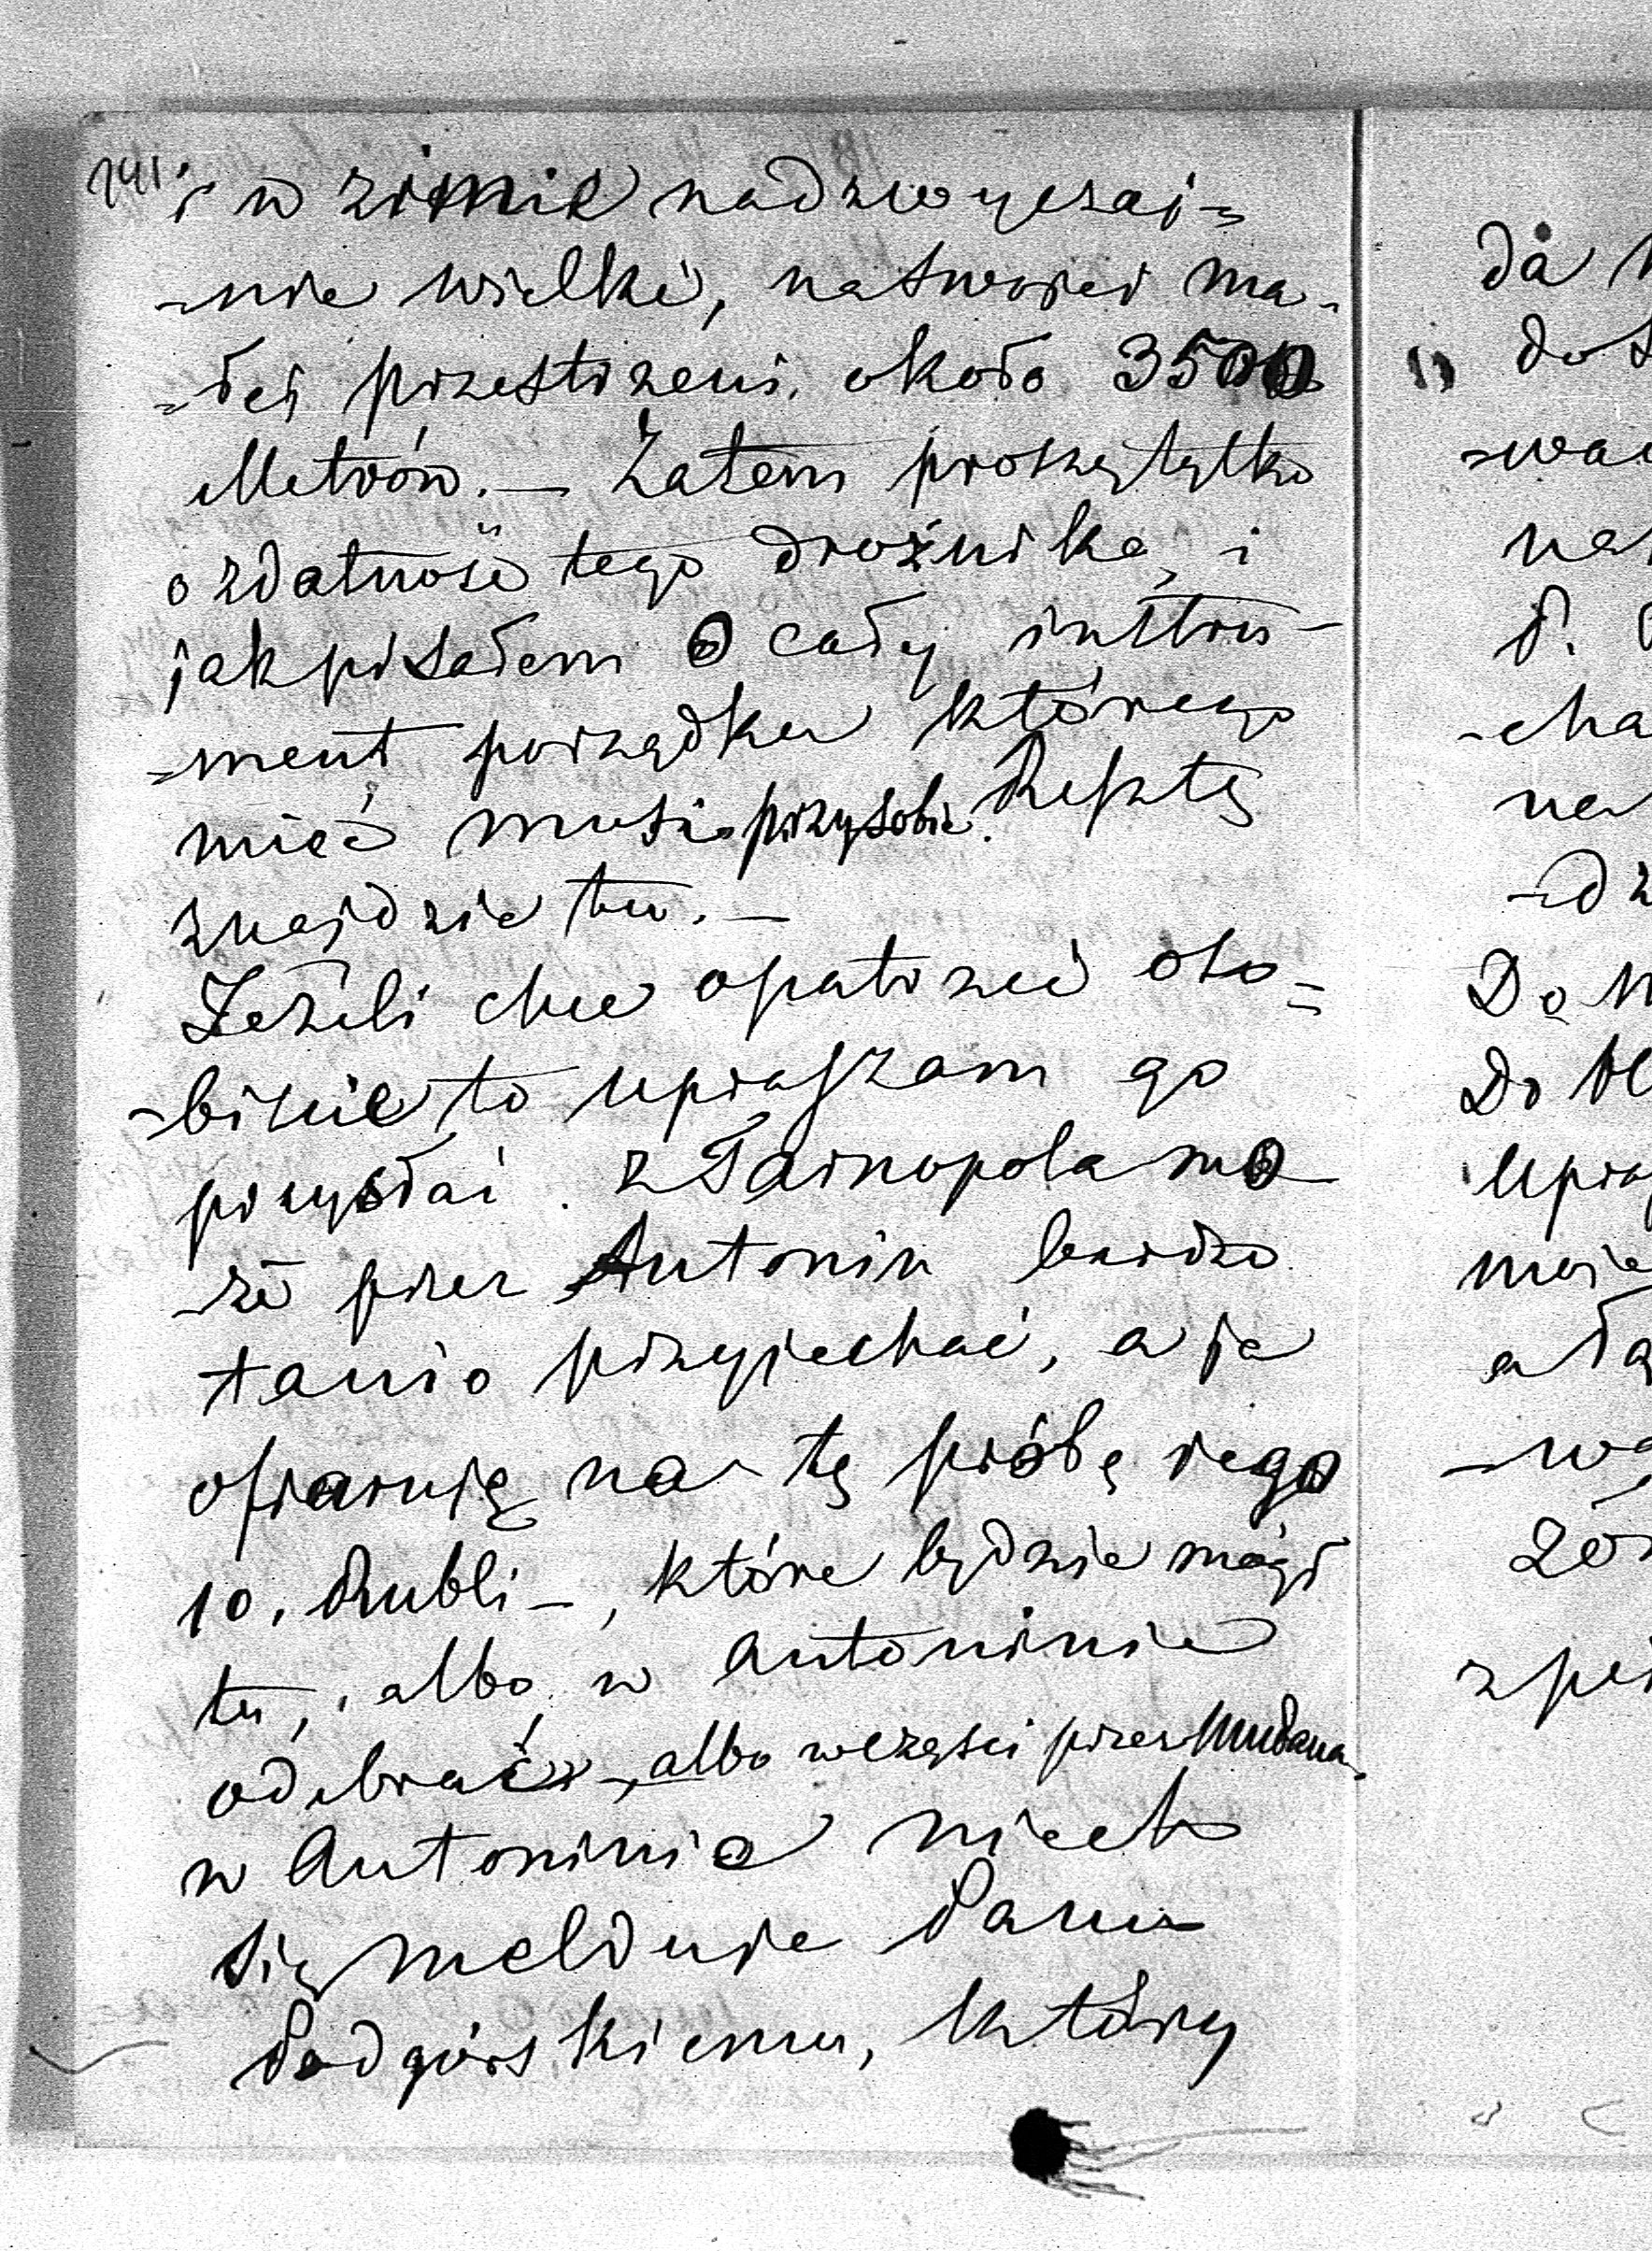 241
i w zimie nadzwyczaj-
-nie wielki, na swojej ma-
-łej przestrzeni około 3500
Metrów. — Zatem proszę tylko
o zdatność tego drożnika, i
jak pisałem o cały instru-
-ment porządku którego
mieć musi przy sobie. Resztę
znajdzie tu. —
Jeżeli chce opatrzeć oso=
-biście to upraszam go
przysłać. z Tarnopola mo
-że przez Antonin bardzo
tanio przyjechać, a ja
ofiaruję na tę próbę jego
10. Rubli —, które będzie mógł
tu, albo w Antoninie
odebrać —, albo w części przez
w Antoninie niech
się melduje Panu
Podgórskiemu, który
da
do
-wa
na
P.
-cha
na
-dz
Do
Do
Upra
moje
a
-wa